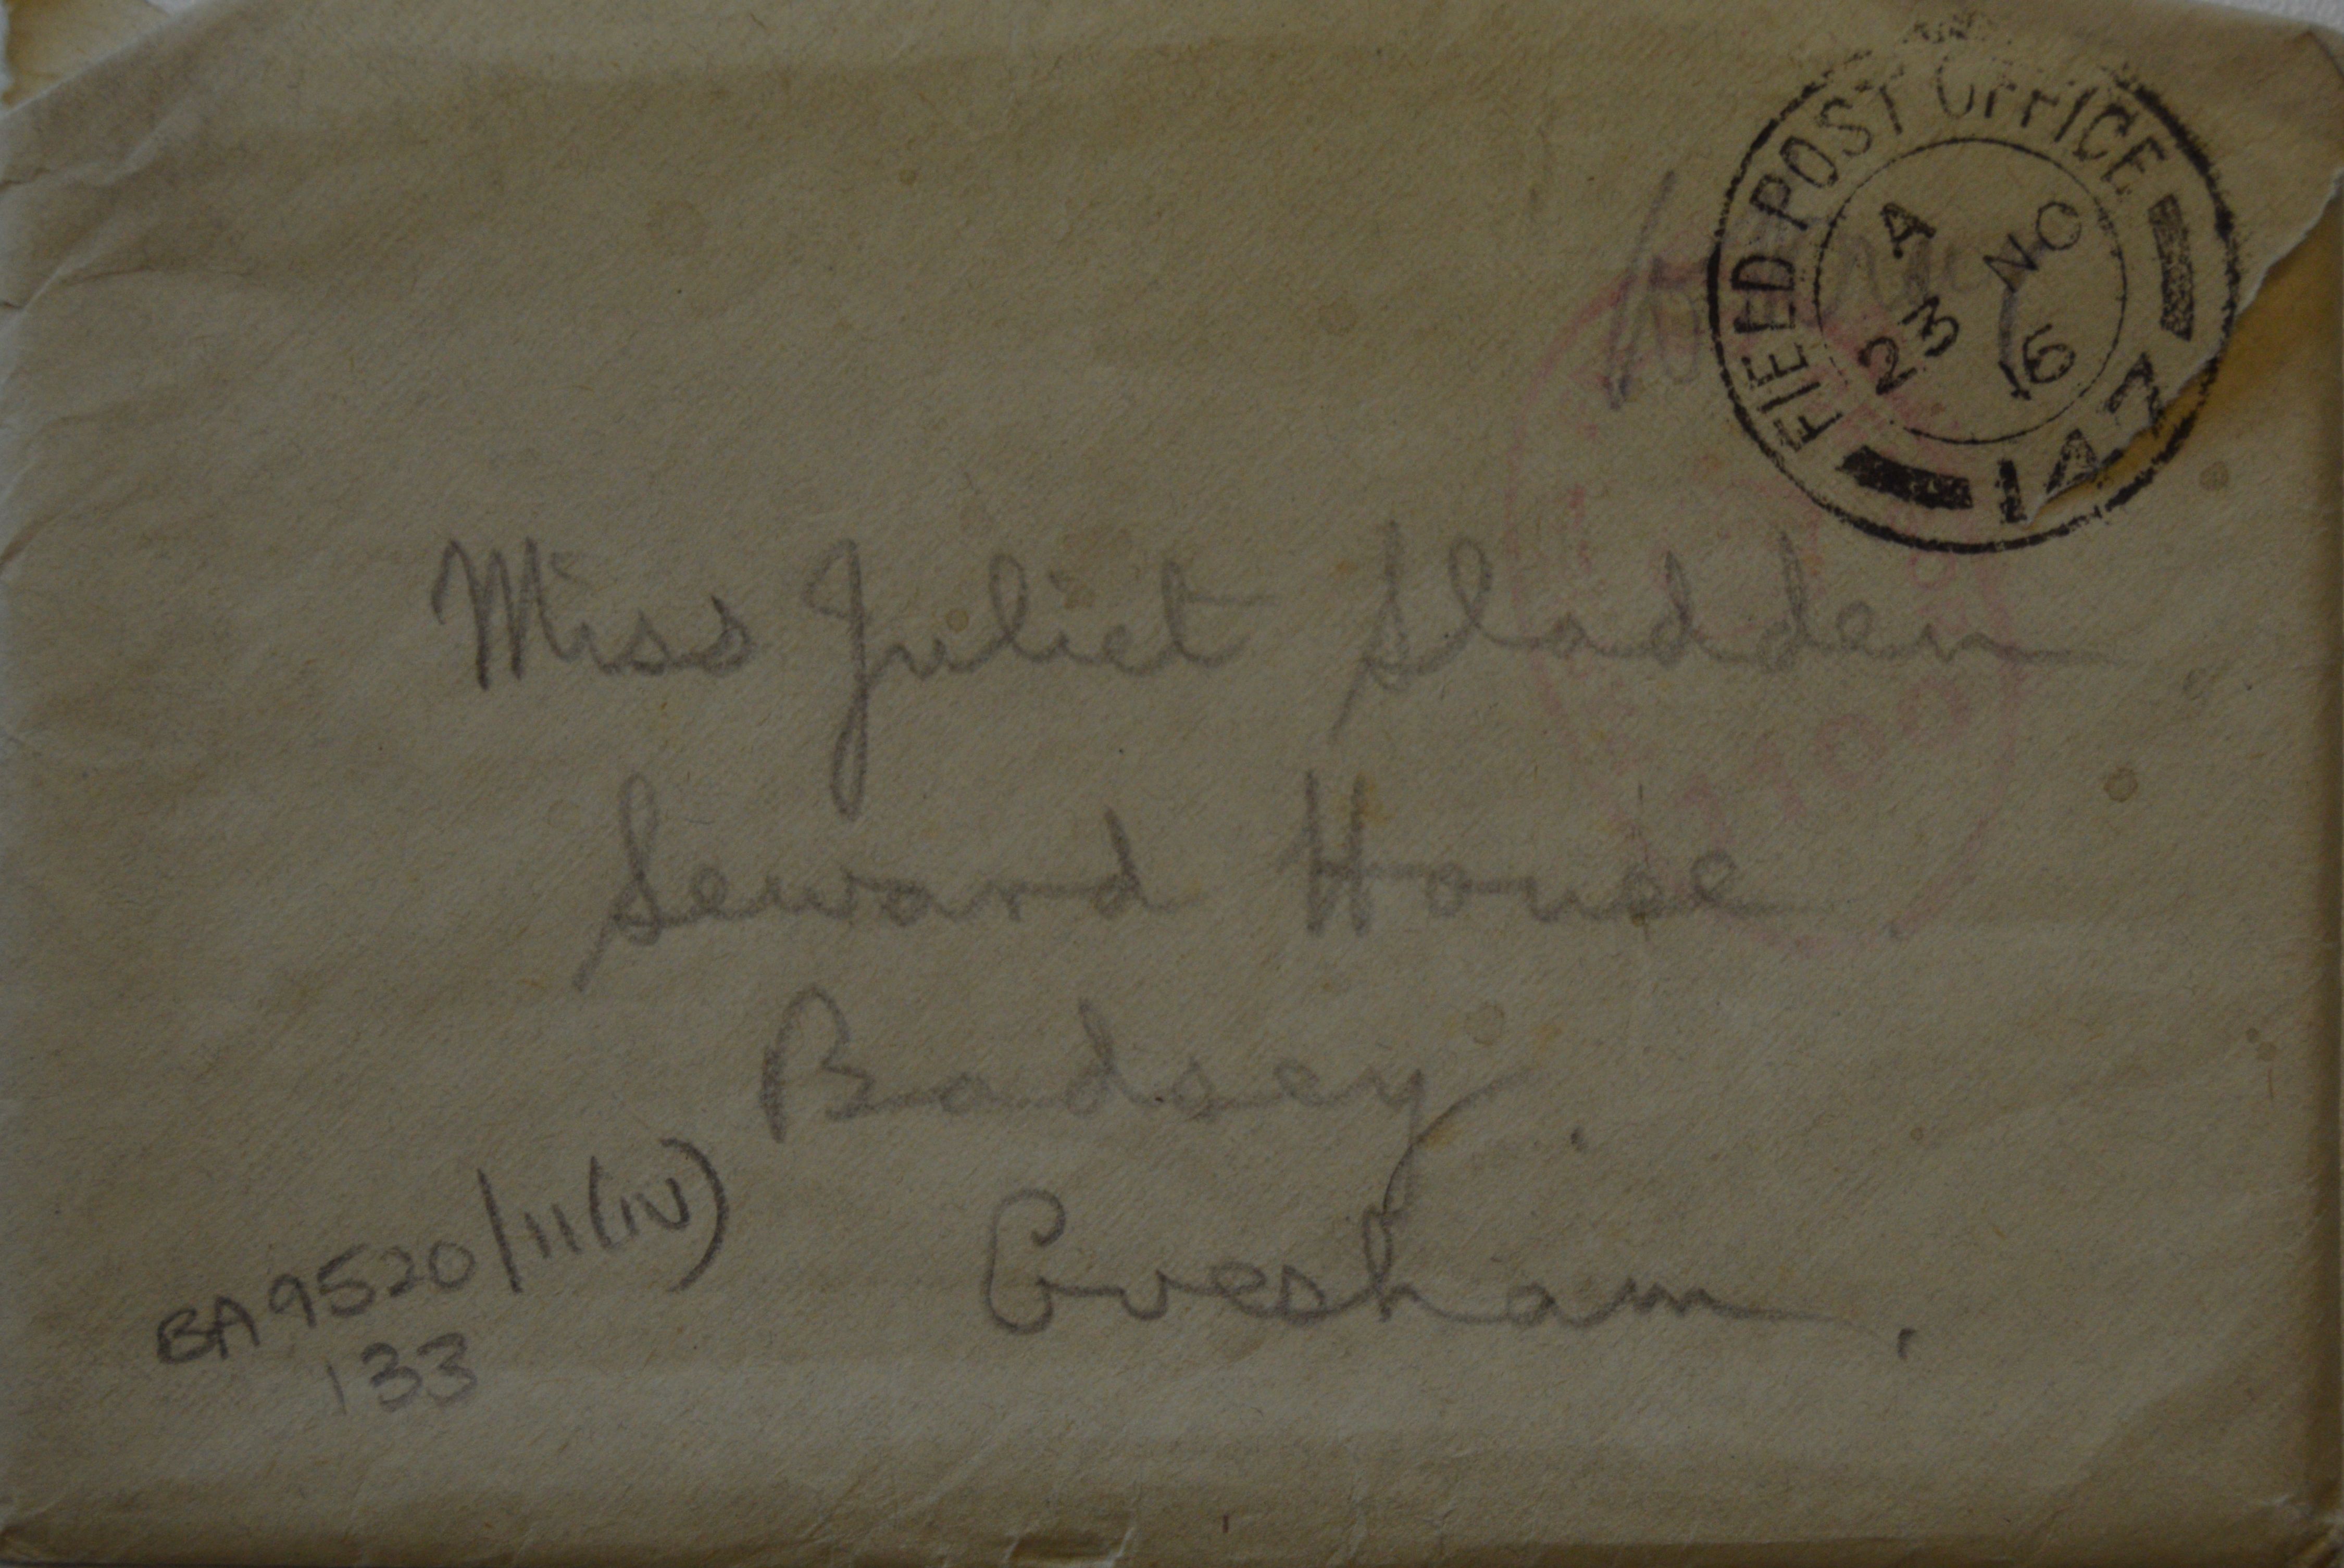 FIELD POST OFFICE
A
23 NO
16
Miss Juliet Sladden
Seward House
Badsey.
Evesham.
BA9520/11(IV)
133